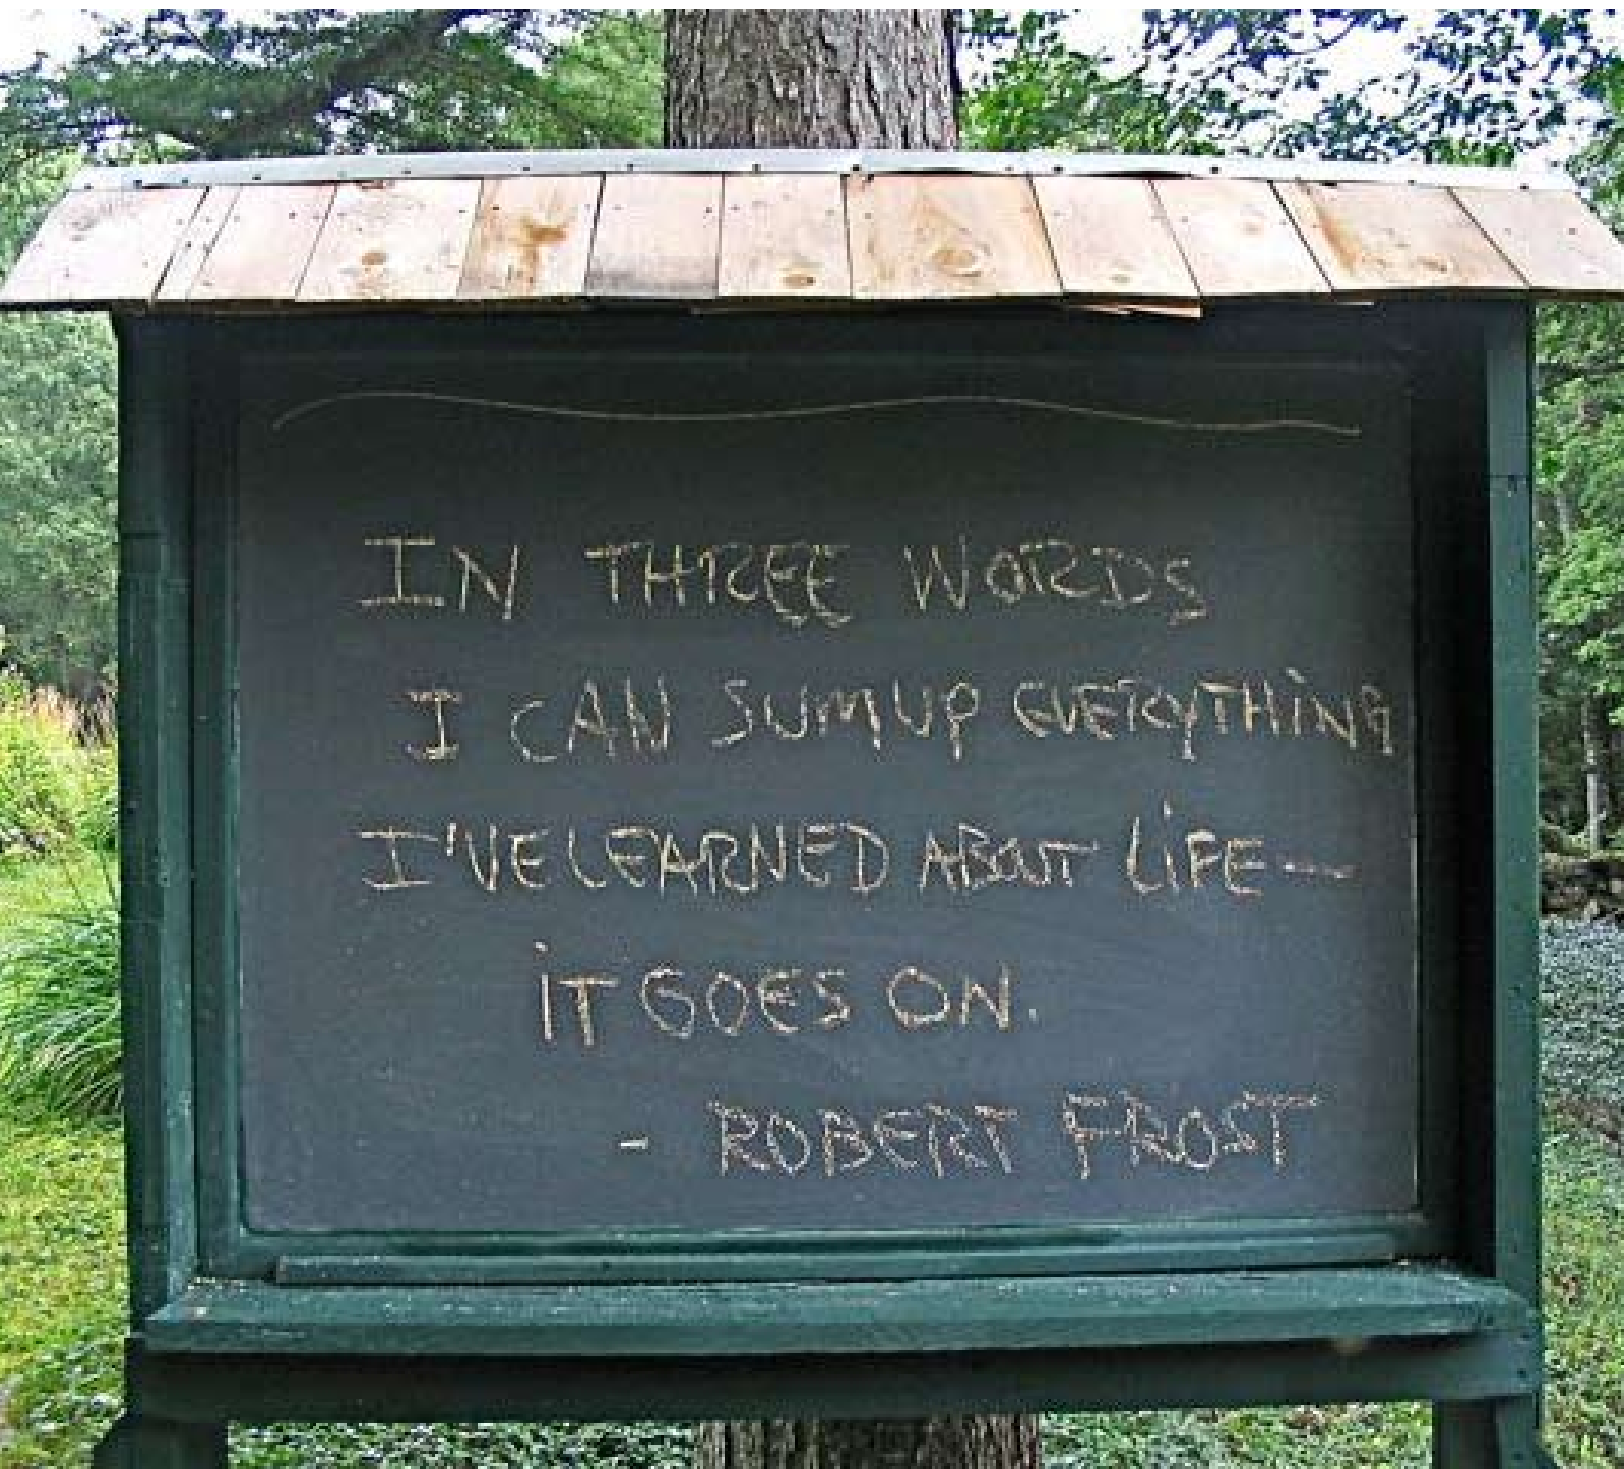 IN THREE WORDS
I CAN SUM UP EVERYTHING
I'VE LEARNED ABOUT LIFE--
iT GOES ON.
- ROBERT FROST